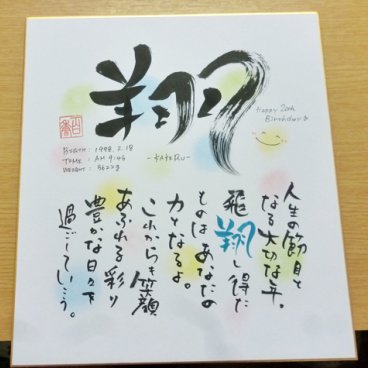 翔
Happy 20th
Birthday
BIRTH : 1998. 2. 18
TIME : AM 9:45
WEIGHT : 3622g
- KAKERU -
人生の節目と
なる大切な年。
飛翔し得た
ものはあなたの
力となるよ。
これからも笑顔
あふれる彩り
豊かな日々を
過ごしていこう。